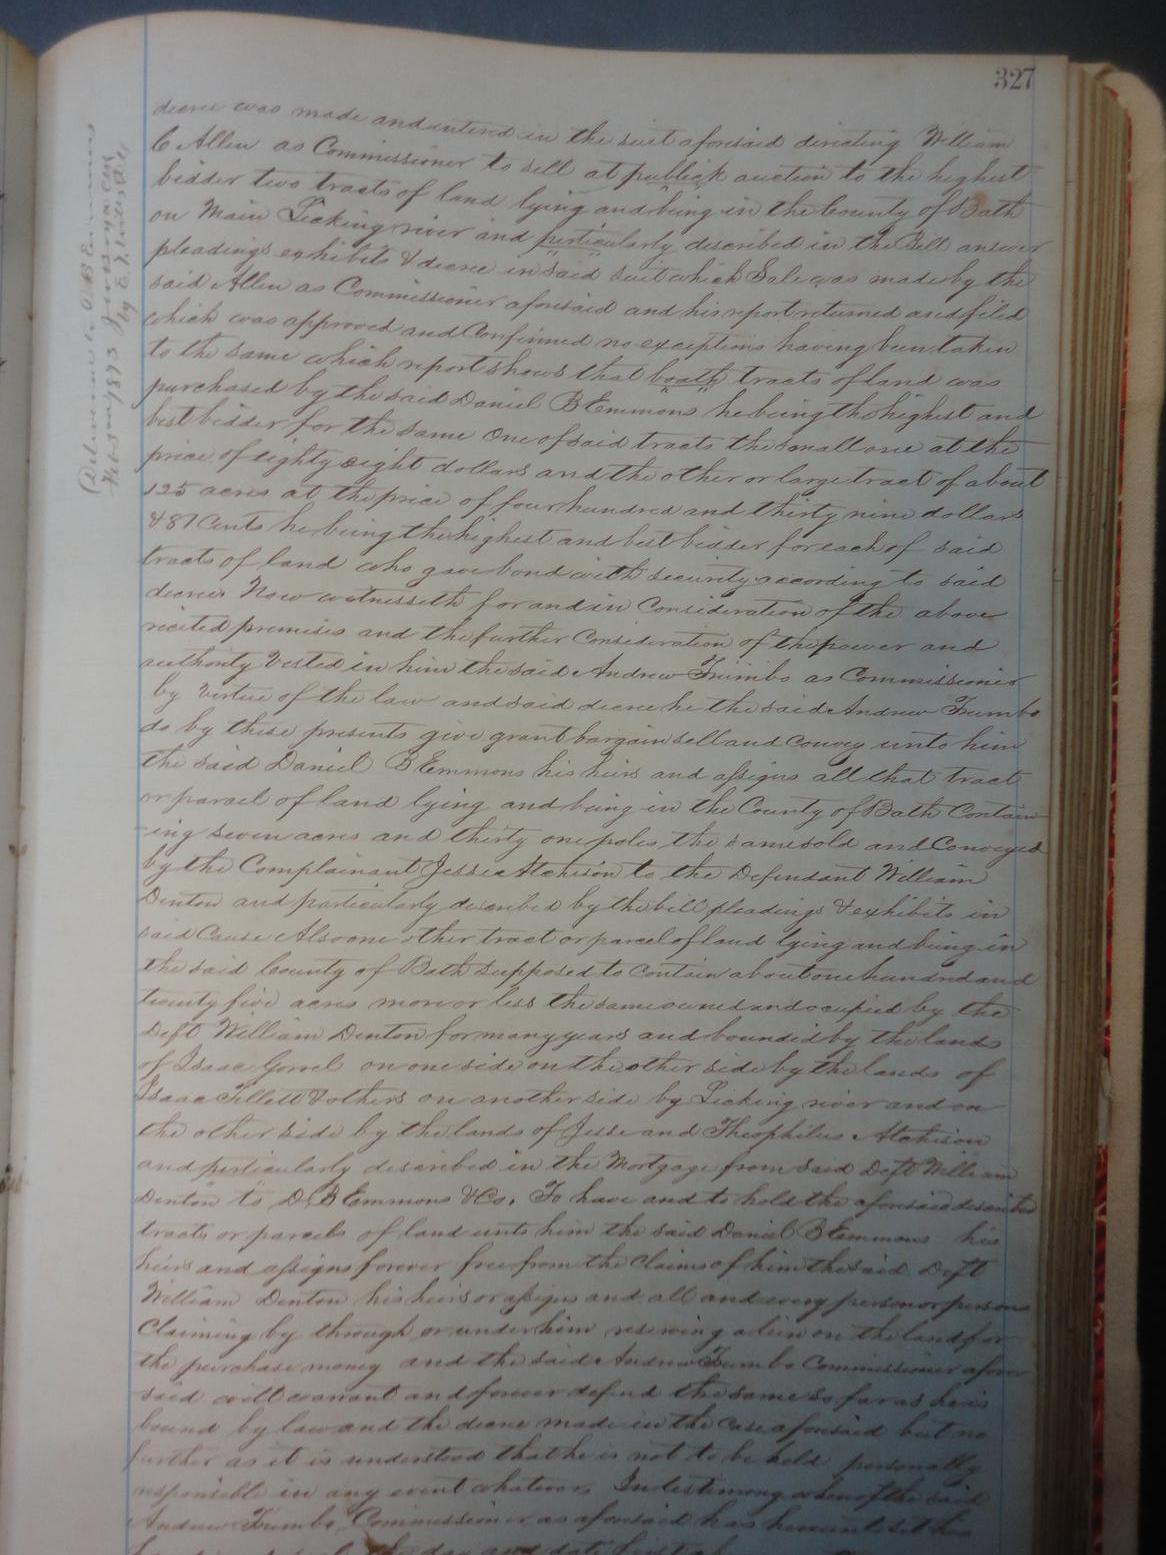 327
decree was made and entered in the suit aforesaid directing William
C Allen as Commissioner to sell at publick auction to the highest
bidder two tracts of land lying and being in the County of Bath
on Main Licking river and perticularly described in the Bill answer
pleadings exhibits & decree in "said" suit which Sale was made by the
said Allen as Commissioner aforesaid and his report returned and filed
which was approved and Confirmed no exceptions having been taken
to the same which report shows that boath tracts of land was
purchased by the said Daniel B Emmons he being the highest and
best bidder for the same One of said tracts the small one at the
price of eighty eight dollars and the other or large tract of about
125 acres at the price of four hundred and thirty nine dollars
& 87 Cents he being the highest and best bidder for each of said
tracts of land who gave bond with security according to said
decree Now witnesseth for and in Consideration of the above
recited premises and the further Consideration of the power and
authority Vested in him the said Andrew Trumbo as Commissioner
by virtue of the law and said decree he the said Andrew Trumbo
do by these presents give grant bargain sell and Convey unto him
the said Daniel B Emmons his heirs and assigns all that tract
or parcel of land lying and being in the County of Bath Contain
-ing seven acres and thirty one poles the same sold and Conveyed
by the Complainant Jesse Atchison to the Defendant William
Denton and particularly described by the bill pleadings & exhibits in
said Cause Also one other tract or parcel of land lying and being in
the said County of Bath supposed to Contain about one hundred and
twenty five acres more or less the same owned and occupied by the
Deft William Denton for many years and bounded by the lands
of Isaac Gorrel on one side on the other side by the lands of
Isaac Tillett & others on another side by Licking river and on
the other side by the lands of Jesse and Theophilus Atchison
and perticularly described in the Mortgage from said Deft William
Denton to D. B Emmons & Co. To have and to hold the aforesaid described
tracts or parcels of land unto him the said Daniel B Emmons his
heirs and assigns forever free from the Claims of him the said Deft
William Denton his heirs or assigns and all and every person or persons
Claiming by through or under him reserving a lien on the land for
the purchase money and the said Andrew Trumbo Commissioner afore
said will warrant and forever defend the same so far as he is
bound by law and the decree made in the Case aforesaid but no
further as it is understood that he is not to be held personally
responsible in any event whatever. In testimony whereof the said
Andrew Trumbo Commissioner as aforesaid has hereunto set his
the day and date first
(Delivered to D B Emmons
1893
by